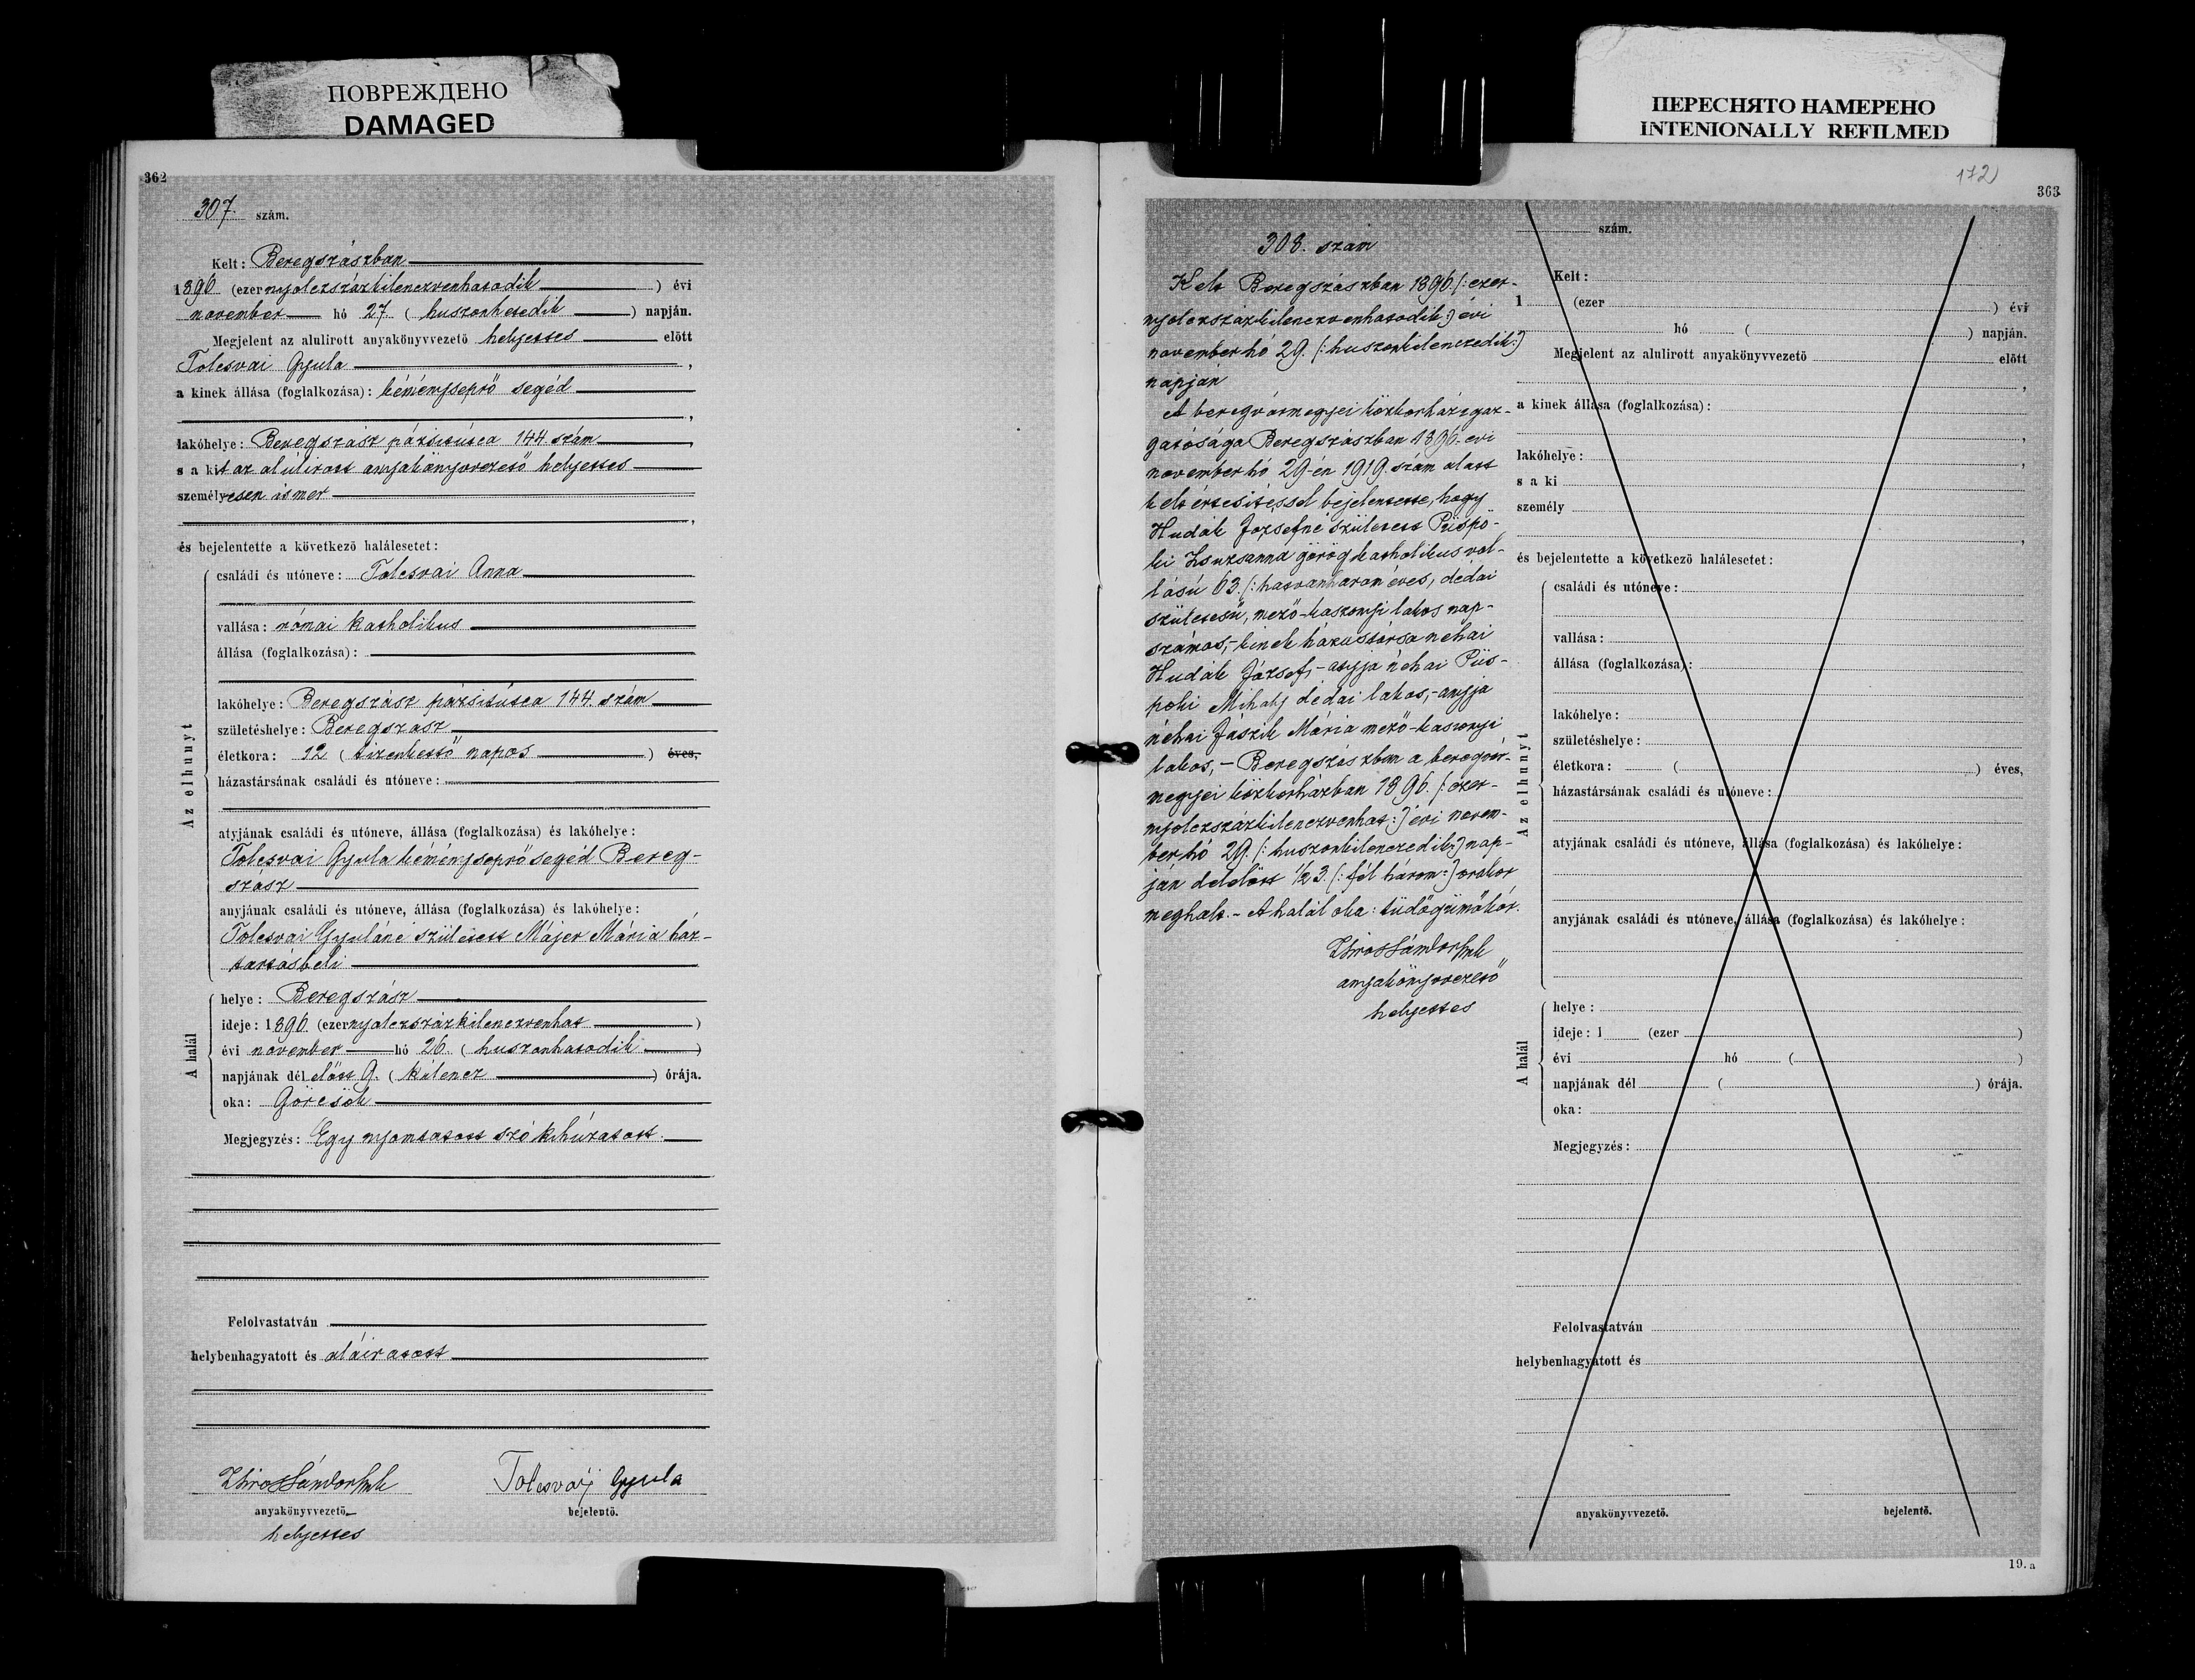 ПОВРЕЖДЕНО
DAMAGED
ПЕРЕСНЯТО НАМЕРЕНО
INTENIONALLY REFILMED
362
307. szám.
Kelt: Beregszászban
1896 (ezernyolczszázkilenczvenhatodik) évi
november hó 27. (huszonhetedik) napján.
Megjelent az alulirott anyakönyvvezető helyettes előtt
Tolcsvai Gyula,
a kinek állása (foglalkozása): kéményseprő segéd
,
lakóhelye: Beregszász pázsitútca 144 szám,
s a kit az alúlirott anyakönyvvezető helyettes
személyesen ismer
,
és bejelentette a következő halálesetet:
Az elhunyt
családi és utóneve: Tolcsvai Anna
vallása: római katholikus
állása (foglalkozása):
lakóhelye: Beregszász pázsitútca 144. szám
születéshelye: Beregszász
életkora: 12 (tizenkettő napos) éves,
házastársának családi és utóneve:
atyjának családi és utóneve, állása (foglalkozása) és lakóhelye:
Tolcsvai Gyula kéményseprősegéd Bereg-
szász
anyjának családi és utóneve, állása (foglalkozása) és lakóhelye:
Tolcsvai Gyuláné született Májer Mária ház-
tartásbeli
A halál
helye: Beregszász
ideje: 1896. (ezernyolczszázkilenczvenhat)
évi november hó 26. (huszonhatodik)
napjának dél előtt 9. (kilencz) órája.
oka: Görcsök
Megjegyzés: Egy nyomtatott szó kihúzatott.
Felolvastatván
helybenhagyatott és aláiratott
Tolcsvaj Gyula
anyakönyvvezető
bejelentő.
helyettes
172
363
308. szám
Kelt Beregszászban 1896 (:ezer-
nyolczszázkilenczvenhatodik:) évi
november hó 29. (:huszonkilenczedik:)
napján
A beregvármegyei közkorház igaz-
gatósága Beregszászban 1896. évi
november hó 29-én 1919. szám alatt
kelt értesitéssel bejelentette, hogy
Hudák Józsefné született Püspö-
ki Zsuzsanna görög katholikus val-
lású 63. (:hatvanhárom éves, dédai
születésű, mező-kaszonyi lakos nap-
számos,- kinek házastársa néhai
Hudák József,- atyja néhai Püs-
pöki Mihály dédai lakos,- anyja
néhai Jászik Mária mező-kaszonyi
lakos,- Beregszászban a beregvár-
megyei közkorházban 1896. (:ezer-
nyolczszázkilenczvenhat:) évi novem-
ber hó 29. (:huszonkilenczedik:) nap-
ján délelőtt 1/2 3. (:fél három:) órakor
meghalt.- A halál oka: tüdőgümőkór.
anyakönyvvezető
helyettes
szám.
Kelt:
1 (ezer ) évi
hó ( ) napján.
Megjelent az alulirott anyakönyvvezető előtt
,
a kinek állása (foglalkozása):
,
lakóhelye: ,
s a ki
személy
,
és bejelentette a következő halálesetet:
Az elhunyt
családi és utóneve:
vallása:
állása (foglalkozása):
lakóhelye:
születéshelye:
életkora: ( ) éves,
házastársának családi és utóneve:
atyjának családi és utóneve, állása (foglalkozása) és lakóhelye:
anyjának családi és utóneve, állása (foglalkozása) és lakóhelye:
A halál
helye:
ideje: 1 (ezer )
évi hó ( )
napjának dél ( ) órája.
oka:
Megjegyzés:
Felolvastatván
helybenhagyatott és
anyakönyvvezető.
bejelentő.
19. a